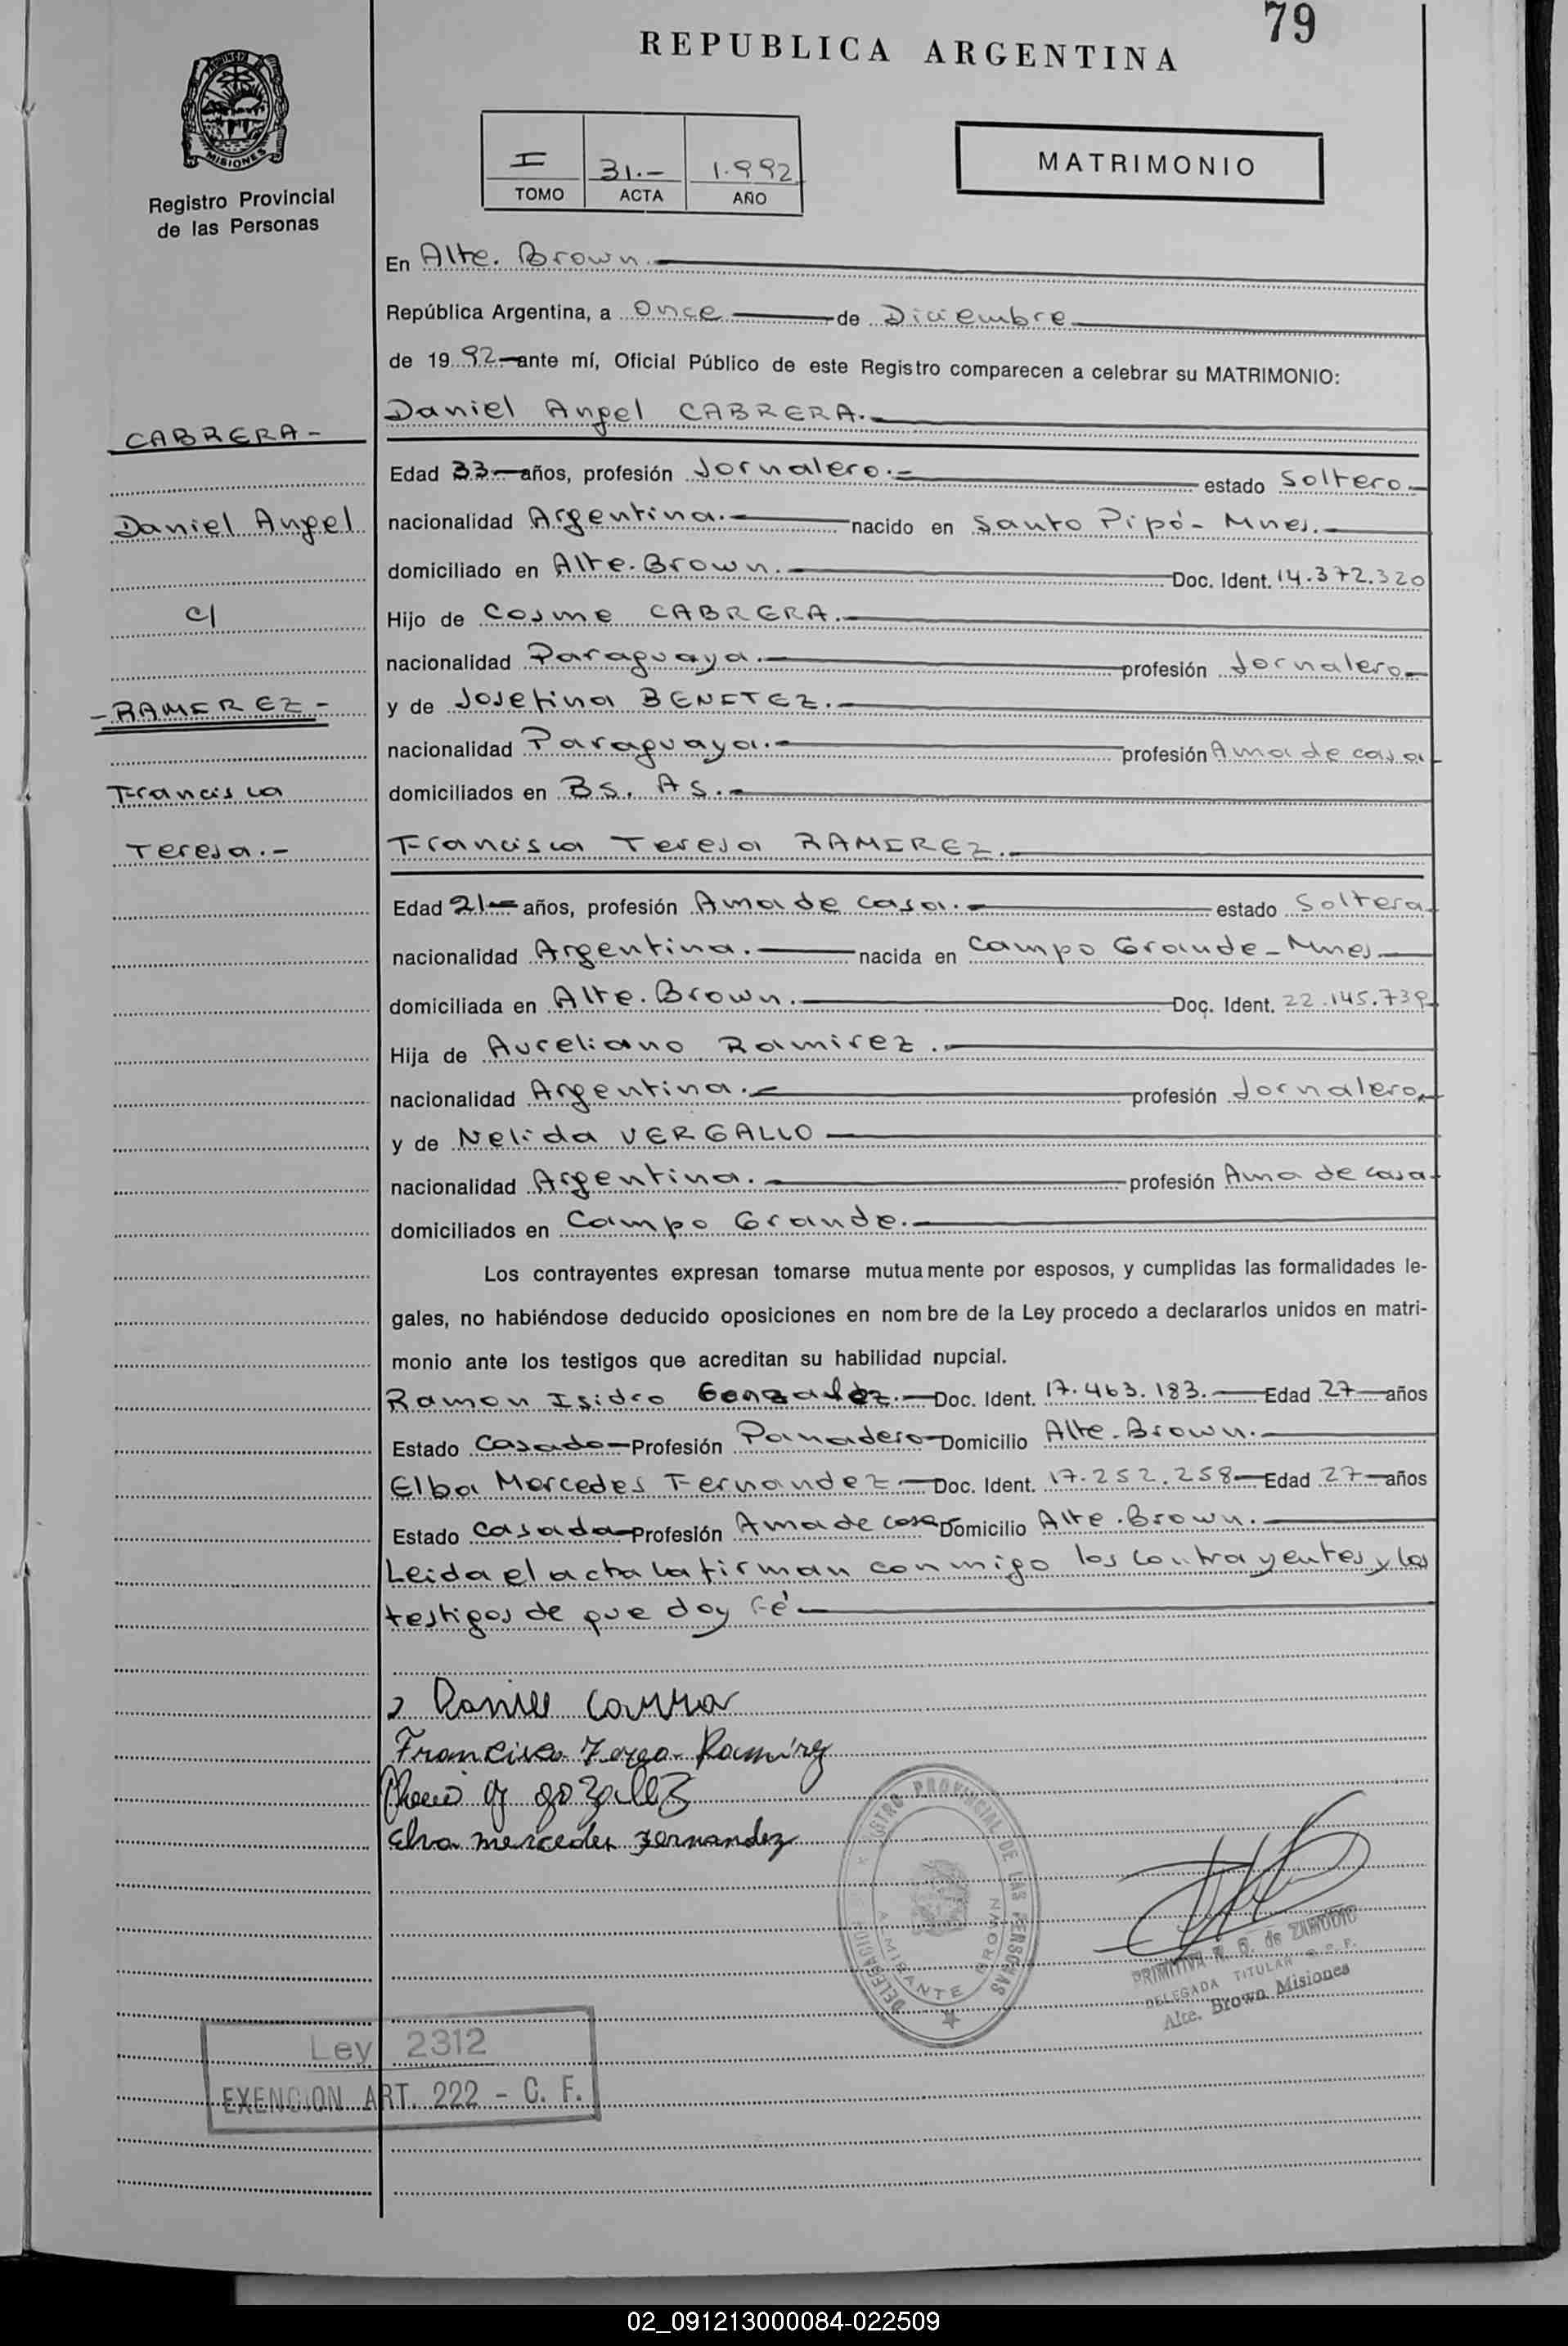 79
REPUBLICA ARGENTINA
MISIONES
Registro Provincial
de las Personas
I 31.- 1.992
TOMO ACTA AÑO
MATRIMONIO
En Alte. Brown.
República Argentina, a Once de Diciembre
de 19 92 ante mí, Oficial Público de este Registro comparecen a celebrar su MATRIMONIO:
Daniel Angel CABRERA.
CABRERA-
Edad 33 años, profesión Jornalero. estado Soltero
Daniel Angel
nacionalidad Argentina. nacido en Santo Pipó- Mnes.
domiciliado en Alte. Brown. Doc. Ident. 14.372.320
c/
Hijo de Cosme CABRERA.
nacionalidad Paraguaya. profesión Jornalero
-RAMIREZ-
y de Josefina BENITEZ.
nacionalidad Paraguaya. profesión Ama de casa
Francisca
domiciliados en Bs. As.
Teresa.-
Francisca Teresa RAMIREZ.
Edad 21 años, profesión Ama de casa. estado Soltera
nacionalidad Argentina. nacida en Campo Grande- Mnes
domiciliada en Alte. Brown. Doc. Ident. 22.145.739
Hija de Aureliano Ramirez.
nacionalidad Argentina. profesión Jornalero
y de Nelida VERGALLO
nacionalidad Argentina. profesión Ama de casa
domiciliados en Campo Grande.
Los contrayentes expresan tomarse mutuamente por esposos, y cumplidas las formalidades le-
gales, no habiéndose deducido oposiciones en nombre de la Ley procedo a declararlos unidos en matri-
monio ante los testigos que acreditan su habilidad nupcial.
Ramon Isidro Gonzalez. Doc. Ident. 17.463.183. Edad 27 años
Estado Casado Profesión Panadero Domicilio Alte. Brown.
Elba Mercedes Fernandez Doc. Ident. 17.252.258 Edad 27 años
Estado Casada Profesión Ama de casa Domicilio Alte. Brown.
Leida el acta la firman conmigo los contrayentes y los
testigos de que doy fé
Francisca Ramírez
Elva mercedes Fernandez
REGISTRO PROVINCIAL DE LAS PERSONAS
DELEGACION
ALMIRANTE BROWN
PRIMITIVA de ZAMUDIO
DELEGADA TITULAR
Alte. Brown Misiones
Ley 2312
EXENCION ART. 222 - C. F.
02_091213000084-022509